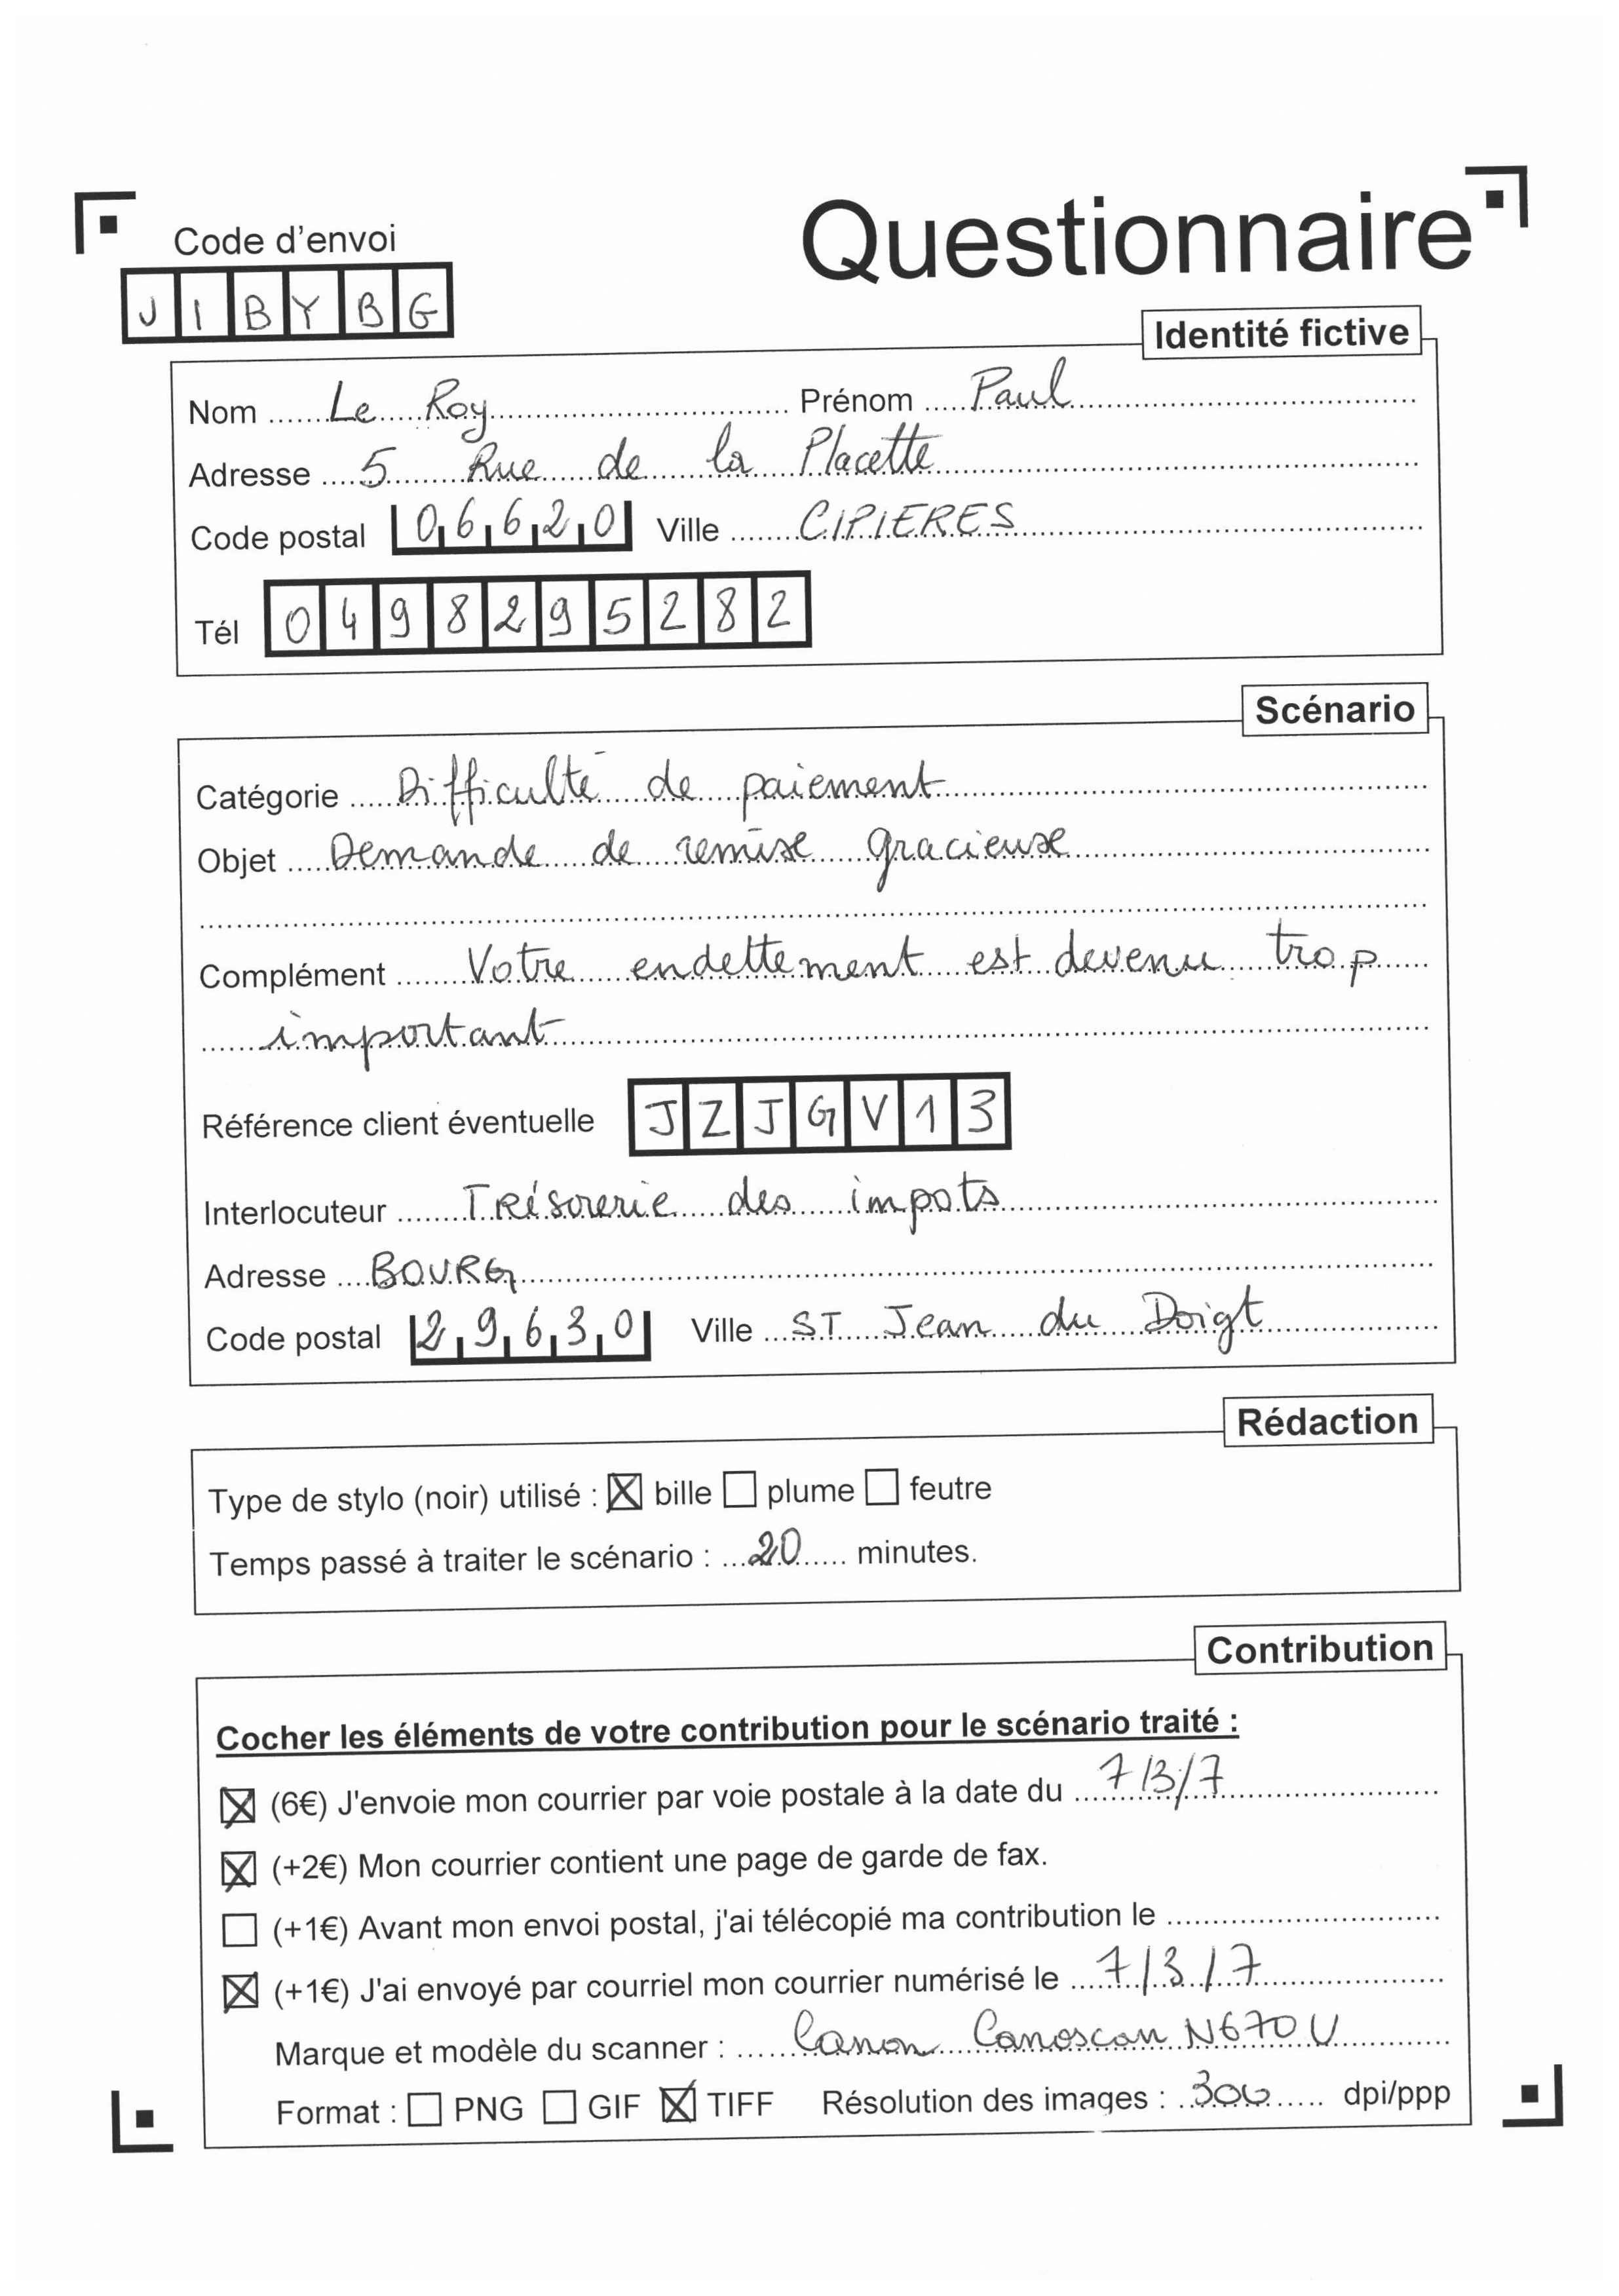 Code d'envoi
Questionnaire
JIBYBG
Identité fictive
Nom Le Roy Prénom Paul
Adresse 5 Rue de la Placette
Code postal 06620 Ville CIPIERES
Tél 0498295282
Scénario
Catégorie Difficulté de paiement
Objet Demande de remise gracieuse
Complément Votre endettement est devenu trop
important
Référence client éventuelle JZJGV13
Interlocuteur Trésorerie des impots
Adresse BOURG
Code postal 29630 Ville ST Jean du Doigt
Rédaction
Type de stylo (noir) utilisé : ☒ bille ☐ plume ☐ feutre
Temps passé à traiter le scénario : 20 minutes.
Contribution
Cocher les éléments de votre contribution pour le scénario traité :
☒ (6€) J'envoie mon courrier par voie postale à la date du 7/3/7
☒ (+2€) Mon courrier contient une page de garde de fax.
☐ (+1€) Avant mon envoi postal, j'ai télécopié ma contribution le
☒ (+1€) J'ai envoyé par courriel mon courrier numérisé le 7/3/7
Marque et modèle du scanner : Canon Canoscan N670U
Format : ☐ PNG ☐ GIF ☒ TIFF Résolution des images : 300 dpi/ppp